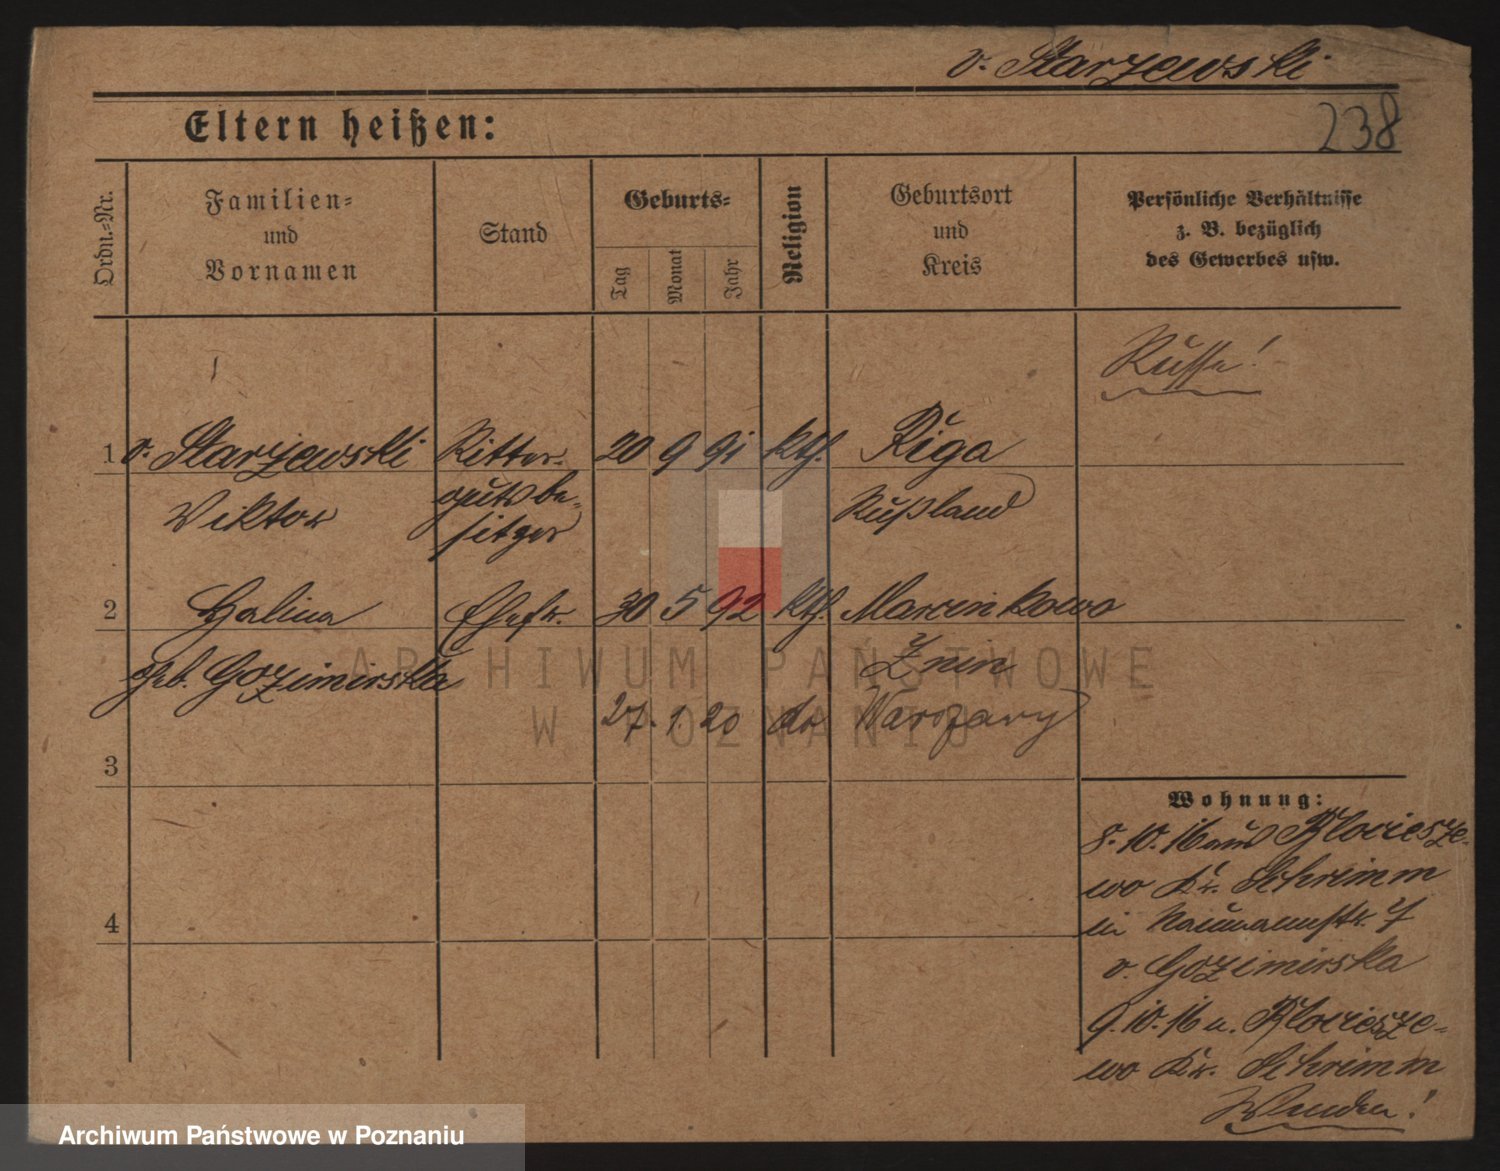 v. Starzewski
Eltern heißen:
238
Ordn.-Nr.
Familien-
und
Vornamen
Stand
Geburts-
Tag
Monat
Jahr
Religion
Geburtsort
und
Kreis
Persönliche Verhältnisse
z. B. bezüglich
des Gewerbes usw.
Russe!
1 v. Starzewski Ritter- 20 9 91 kth. Riga
Viktor gutsbe- Rußland
sitzer
2 Halina Ehefr. 30 5 92 kth. Marcinkowo
geb. Gozimirska Znin
27. 1. 20 Warszawy
3
Wohnung:
8. 10. 16 aus Wlociesze-
wo Kr. Schrimm
4
in Naumannstr. 7
v. Gozimirska
9. 10. 16 n. Wlociesze-
wo Kr. Schrimm
ARCHIWUM PAŃSTWOWE
W POZNANIU
Archiwum Państwowe w Poznaniu